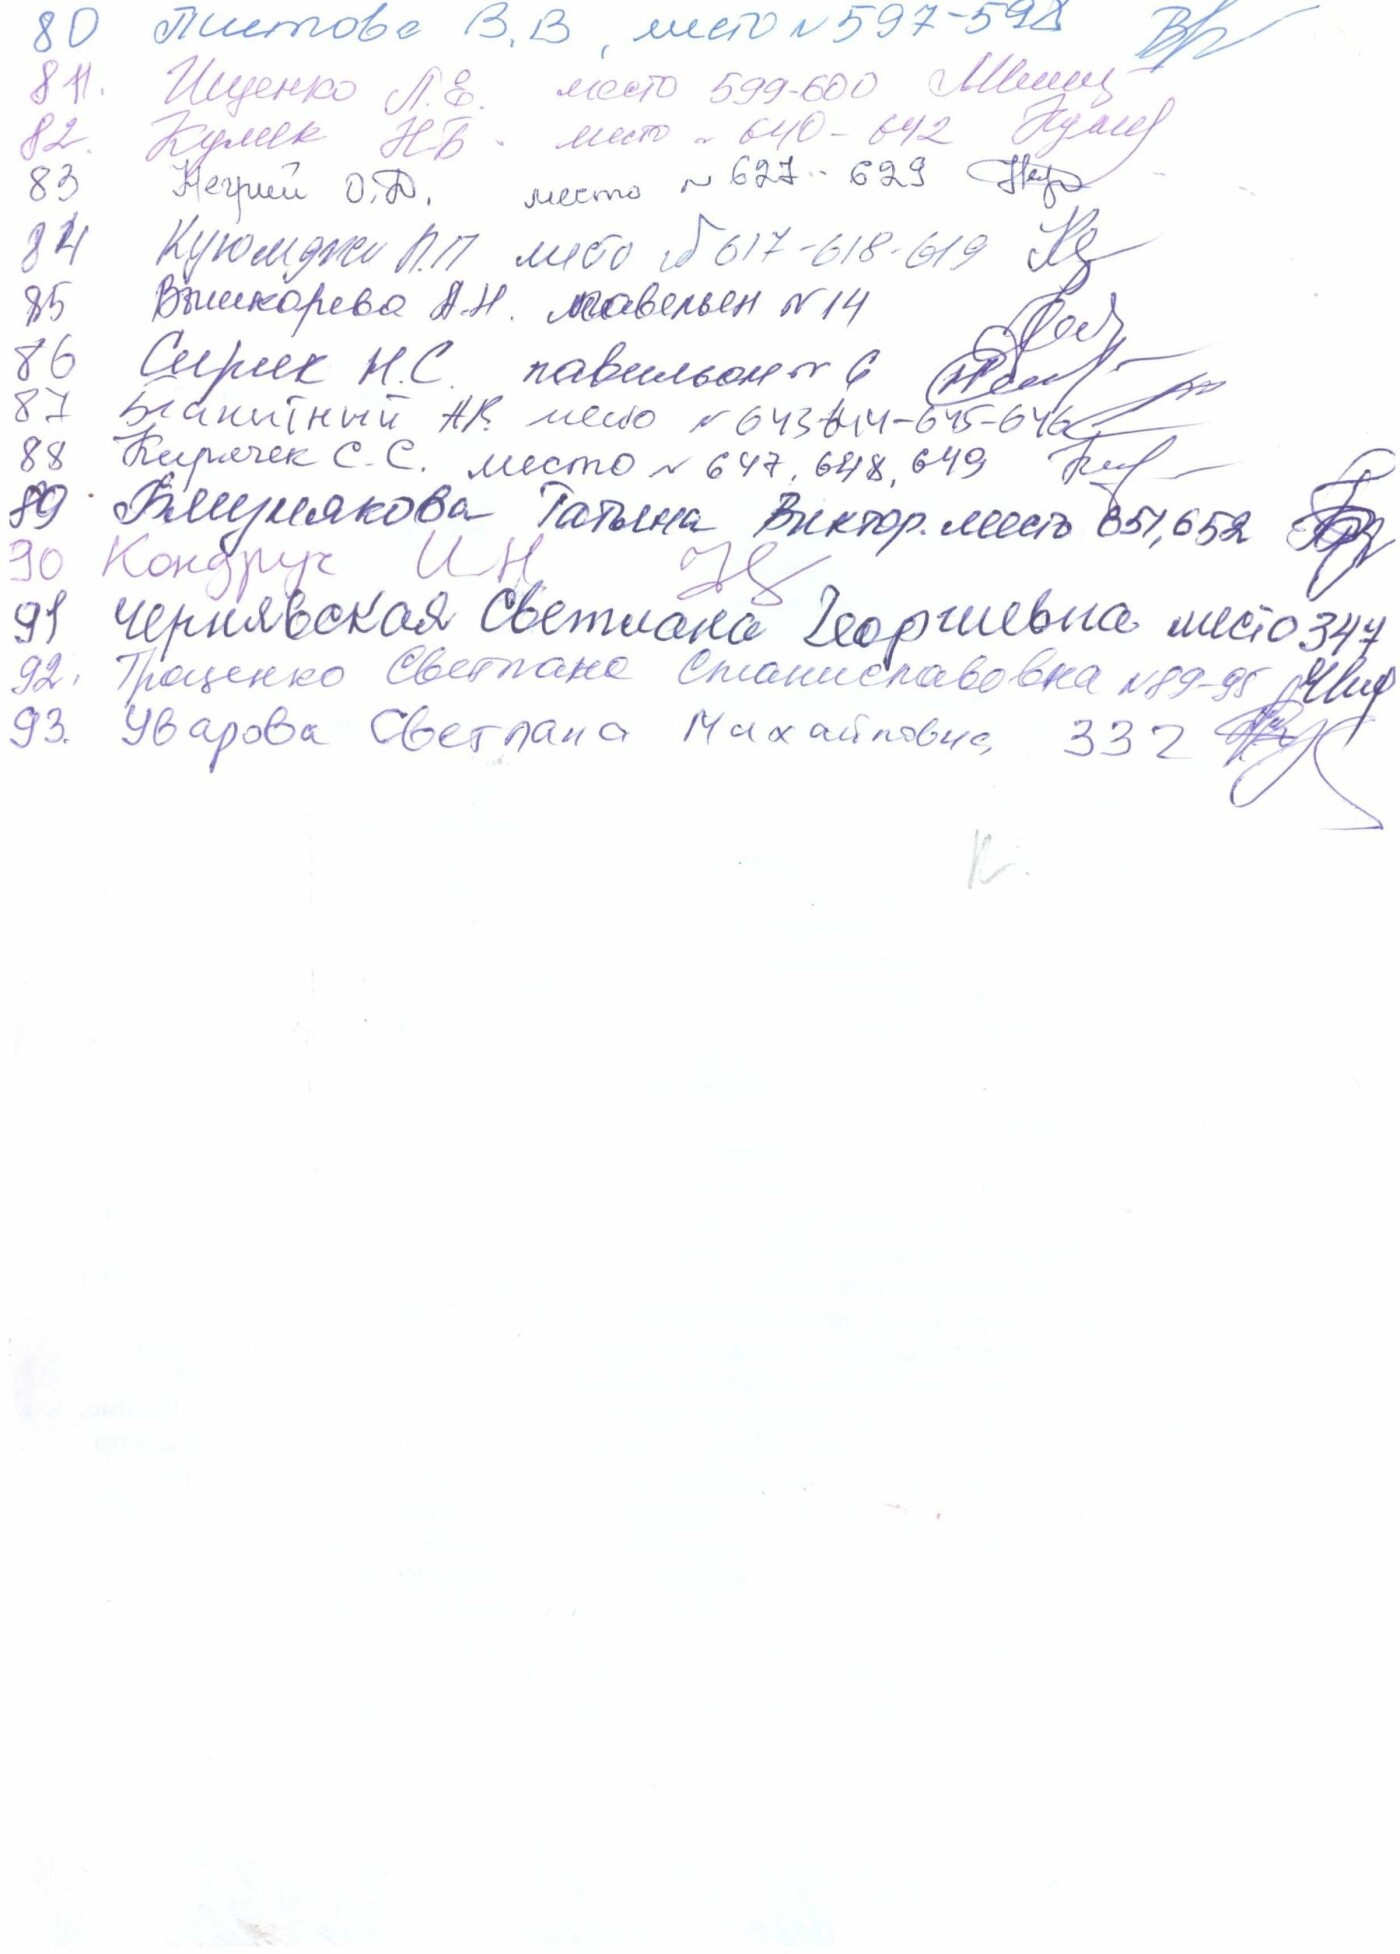 80 Листова В.В, место №597-598
81. Ищенко Л.Е. место 599-600
82. Кулик Н.Б. место № 640-642
83 Негрий О.Д. место № 627-629
84 Куюмджи П.П место № 617-618-619
85 Вышкарева А.Н. павельен №14
86 Сирик Н.С. павильон № 6
87 Блакитный А.В. место № 643-644-645-646
88 Киричек С.С. место № 647, 648, 649
89 Татьяна Виктор. место 651,652
90 Кондрук И Н
91 Чернявская Светлана Георгиевна место 347
92. Проценко Светлана Станиславовна №89-95
93. Уварова Светлана Михайловна 332